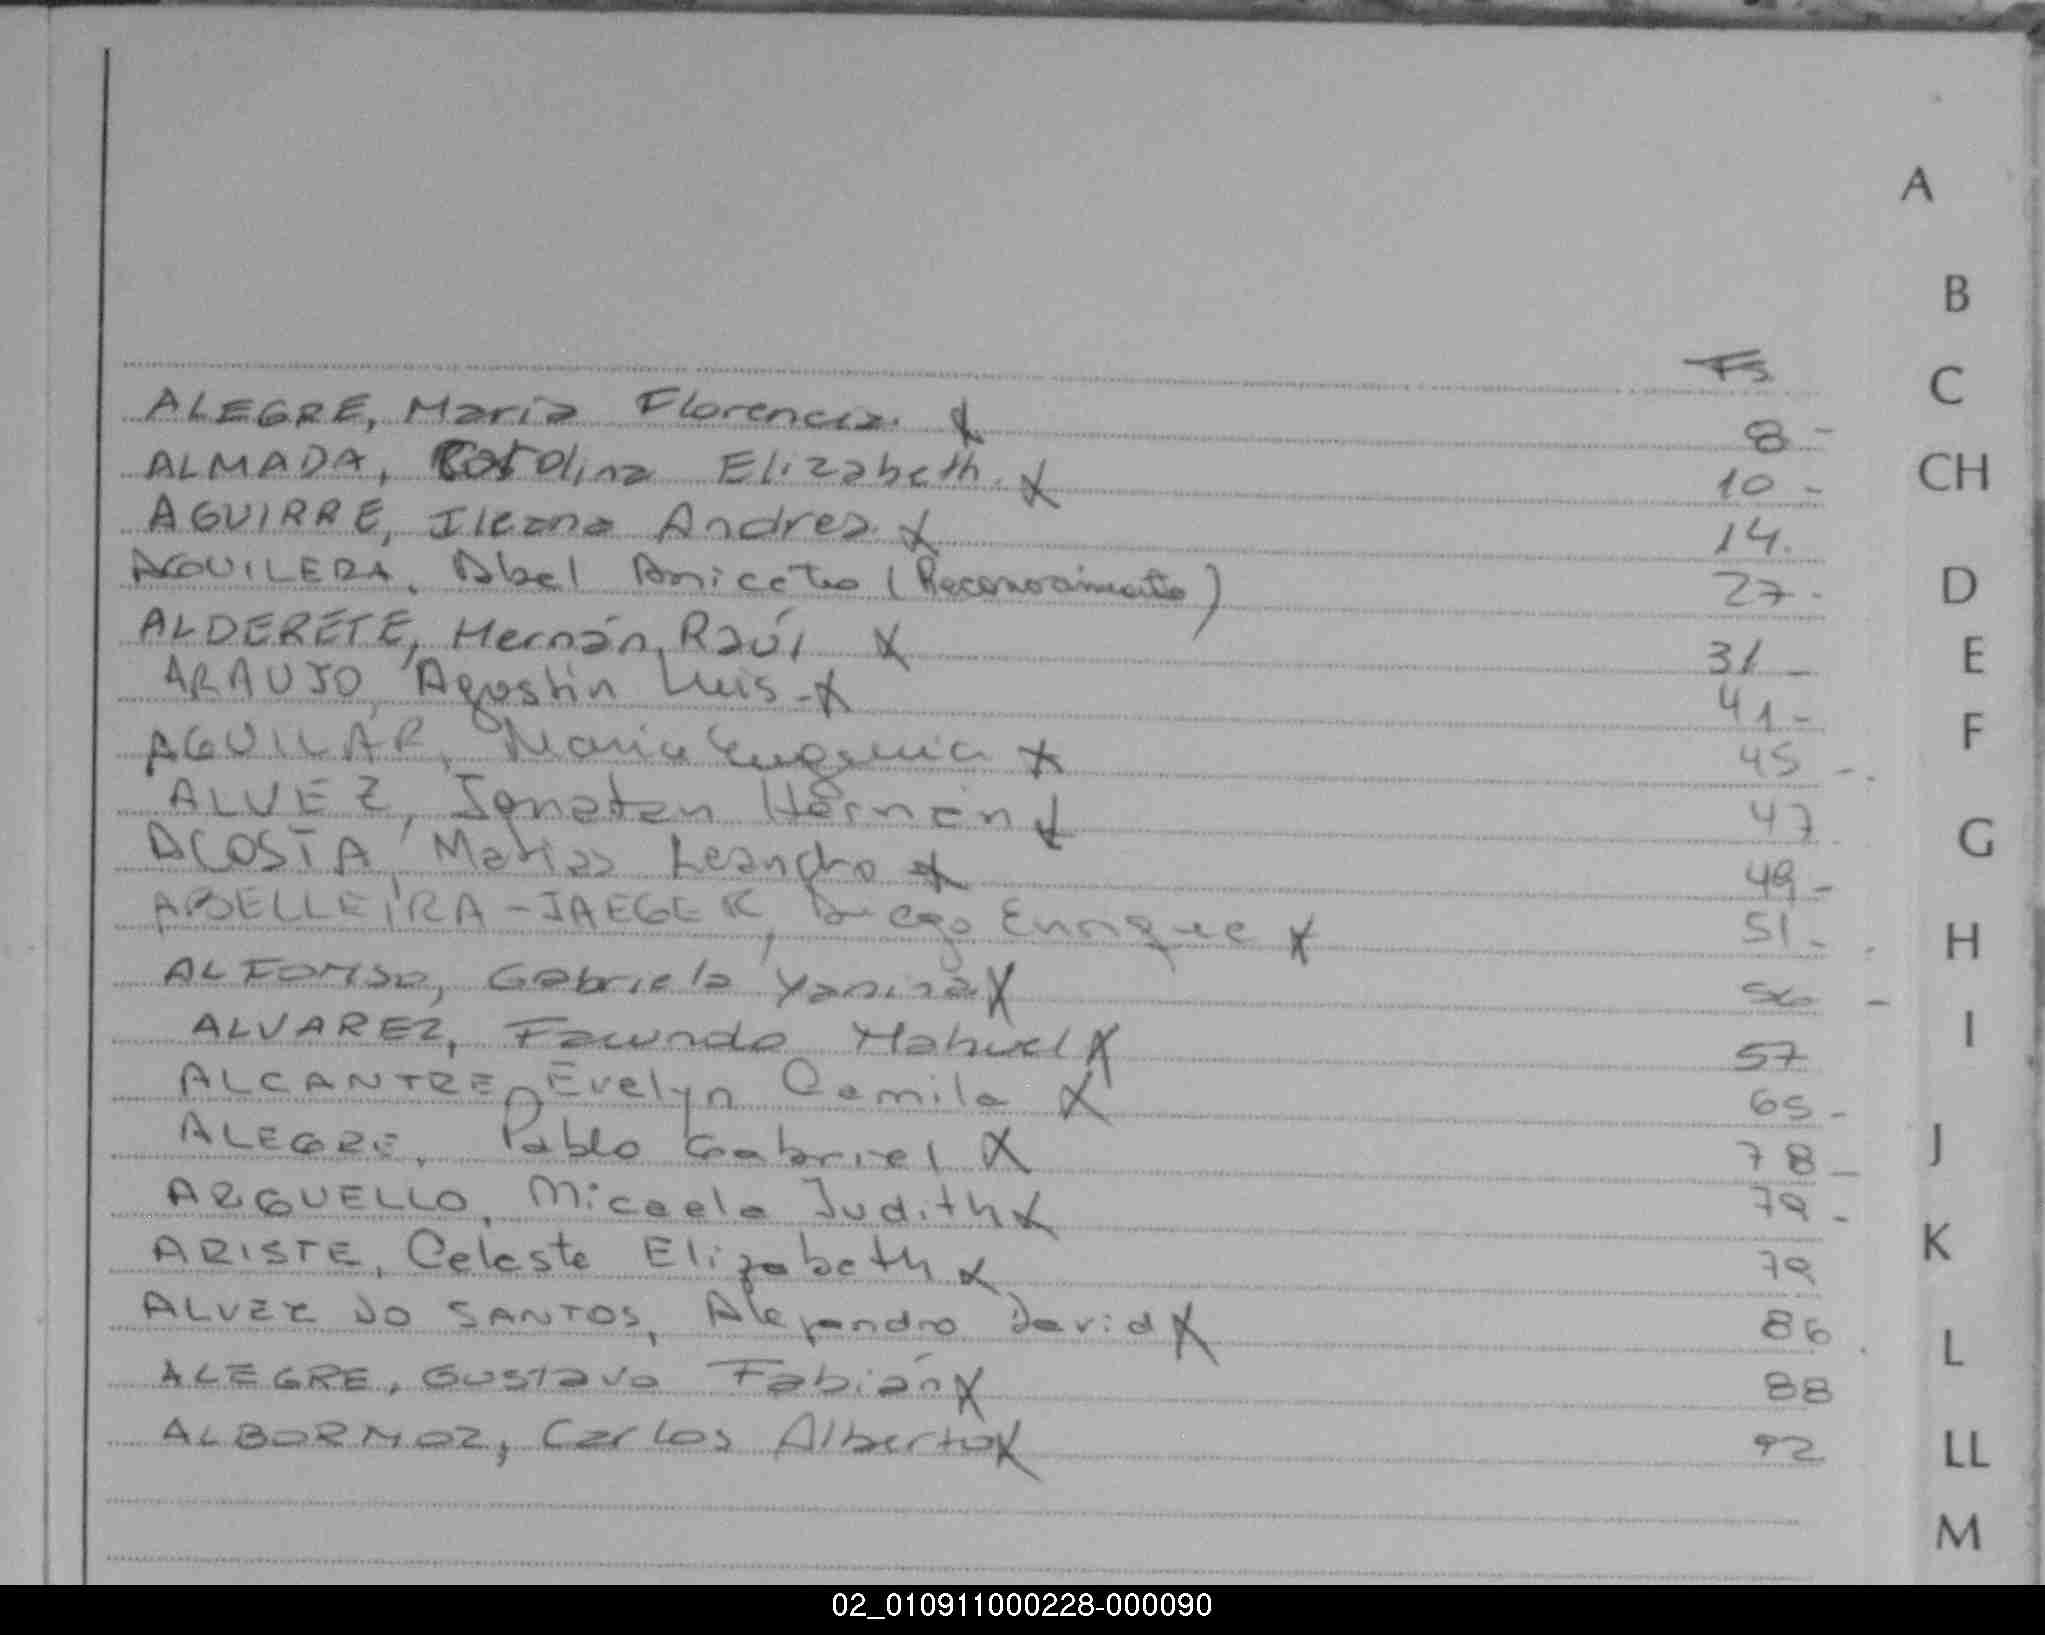 A
B
Fs
C
ALEGRE, María Florencia. X 8 -
ALMADA, Carolina Elizabeth. X 10 -
CH
AGUIRRE, Ileana Andrea. X 14.
AGUILERA, Abel Aniceto (Reconocimiento) 27 -
D
ALDERETE, Hernán Raúl X 31 -
E
ARAUJO, Agostín Luis - X 41 -
F
AGUILAR, Maria Eugenia X 45 - .
ALVEZ, Jonatan Hernán X 47
G
ACOSTA, Matías Leandro X 49 -
ABELLEIRA-JAEGER, Diego Enrique X 51 -
H
ALFONSO, Gabriela Yanina X 56 -
I
ALVAREZ, Facundo Nahuel X 57
ALCANTRE, Evelyn Camila X 65 -
J
ALEGRE, Pablo Gabriel X 78 -
ARGUELLO, Micaela Judith X 79 -
K
ARISTE, Celeste Elizabeth X 79
ALVEZ DO SANTOS, Alejandro David X 86
L
ALEGRE, Gustavo Fabián X 88
ALBORNOZ, Carlos Alberto X 92
LL
M
02_010911000228-000090